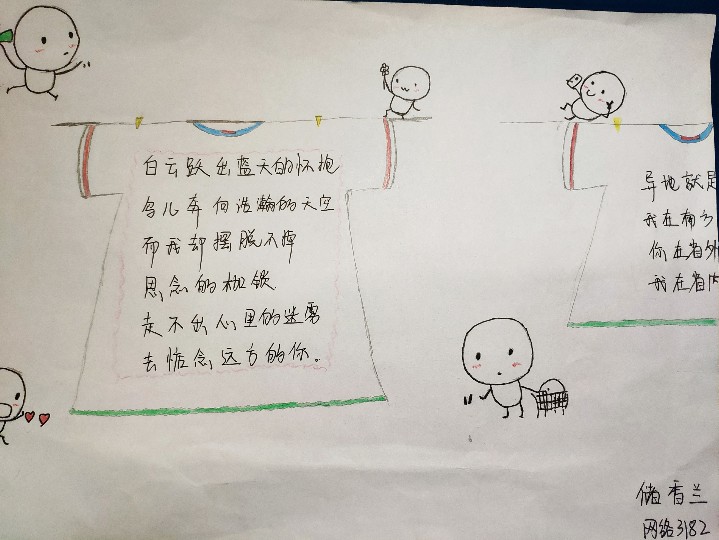 白云跃出蓝天的怀抱
鸟儿奔向浩瀚的天空
而我却摆脱不掉
思念的枷锁
走不出心里的迷雾
去惦念远方的你。
异地就是
我在南方
你在省外
我在省内
储香兰
网络3182